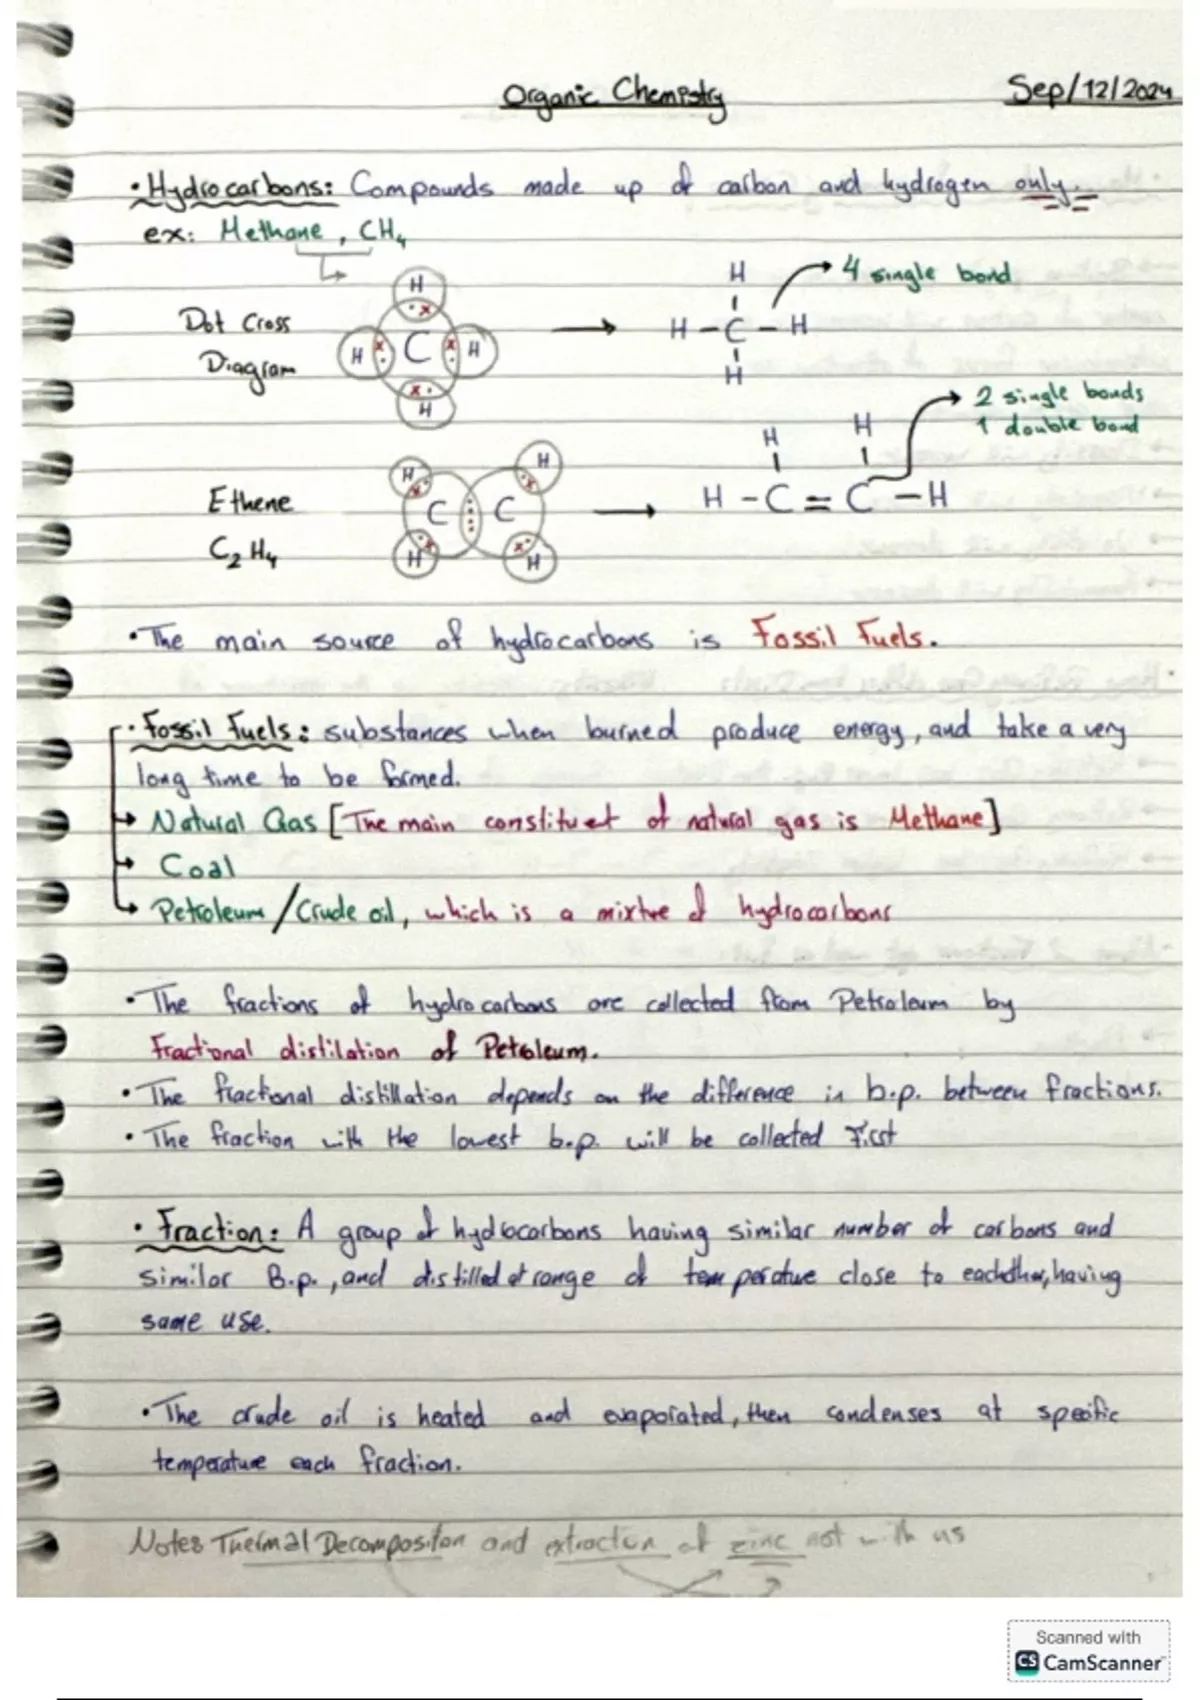 Organic Chemistry
Sep/12/2024
• Hydrocarbons: Compounds made up of carbon and hydrogen only.
ex: Methane, CH4
Dot Cross
Diagram
H
H C H
H
H
H - C - H
H
4 single bond
Ethene
C2 H4
H H
C C
H H
H H
H - C = C - H
2 single bonds
1 double bond
• The main source of hydrocarbons is Fossil Fuels.
• Fossil Fuels: substances when burned produce energy, and take a very
long time to be formed.
→ Natural Gas [The main constituet of natural gas is Methane]
→ Coal
→ Petroleum / Crude oil, which is a mixture of hydrocarbons
• The fractions of hydrocarbons are collected from Petroleum by
Fractional distilation of Petroleum.
• The fractional distillation depends on the difference in b.p. between fractions.
• The fraction with the lowest b.p. will be collected First
• Fraction: A group of hydrocarbons having similar number of carbons and
similar B.p., and distilled at range of temperature close to eachother, having
same use.
• The crude oil is heated and evaporated, then condenses at specific
temperature each fraction.
Notes Thermal Decompositon and extraction of zinc not with us
Scanned with
CS CamScanner